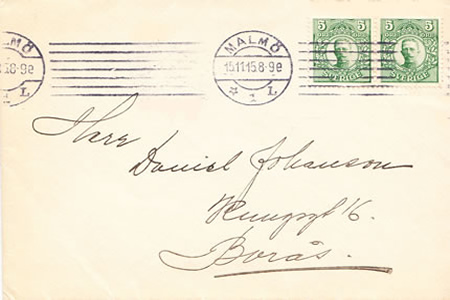 MALMÖ MALMÖ 5 5 5 5
15.8-9e 15.11.15.8-9e
1 L 1 L SVERIGE SVERIGE
Herr
Daniel Johanson
16.
Borås.